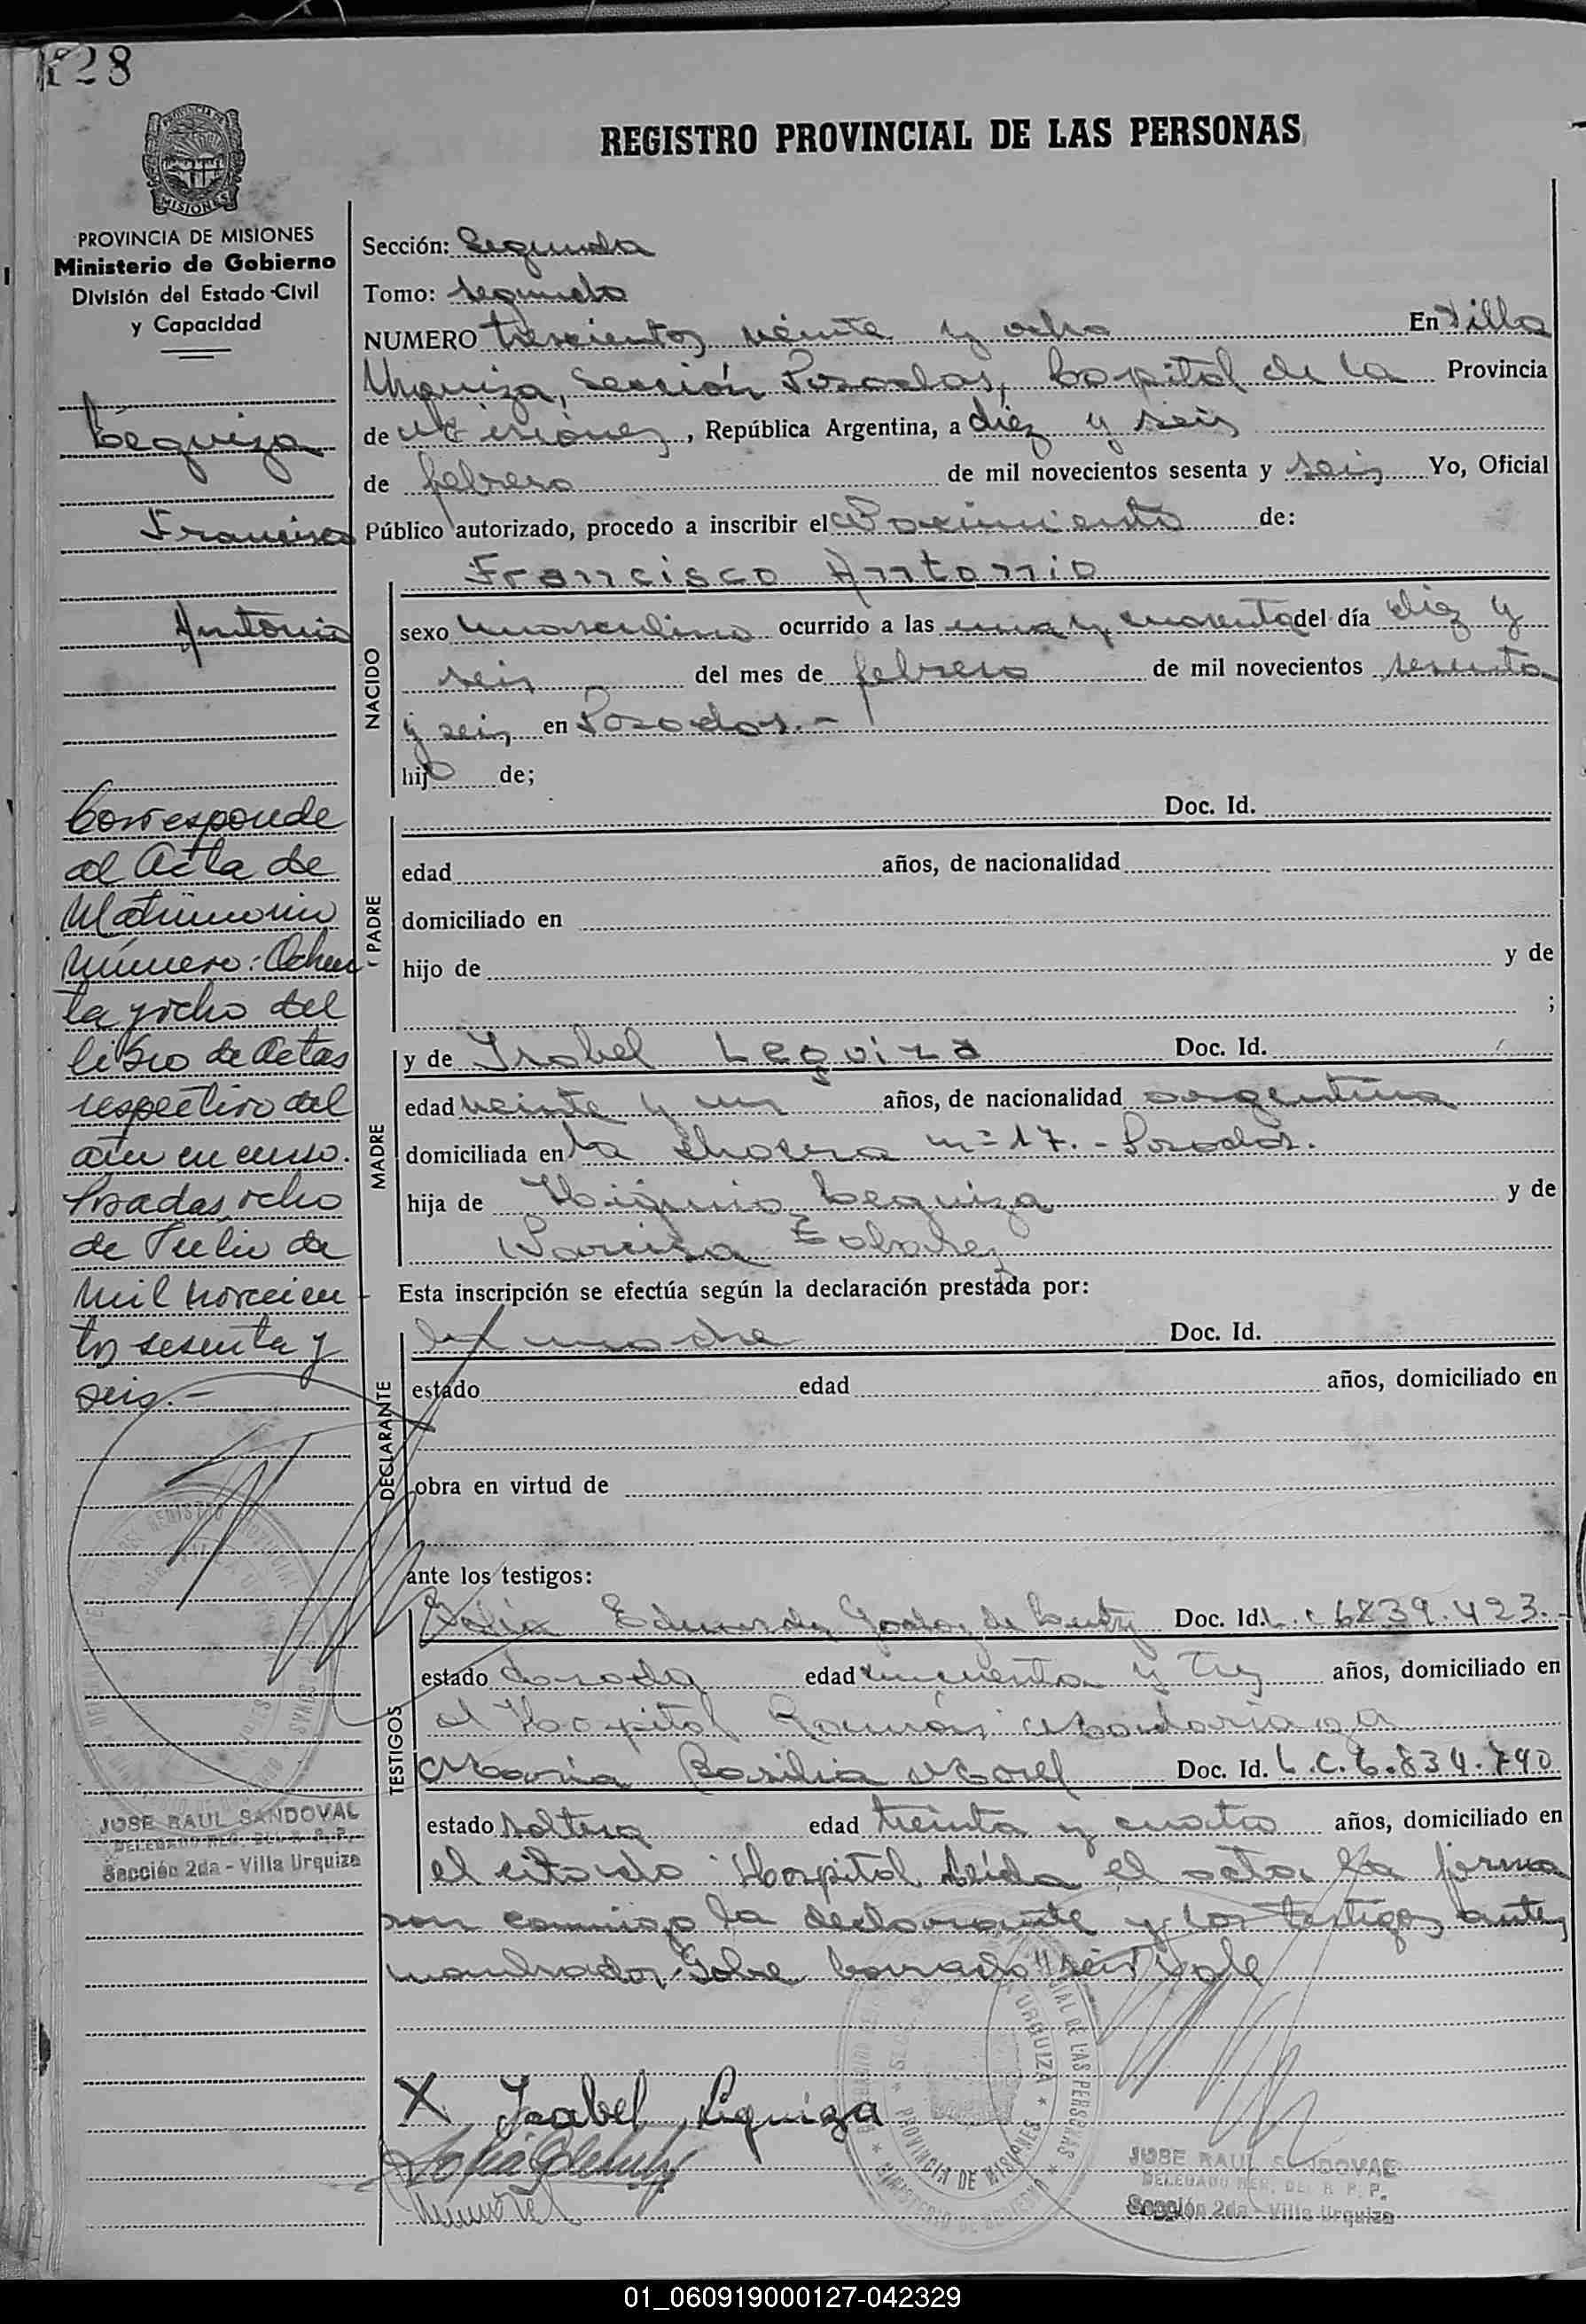 328
REGISTRO PROVINCIAL DE LAS PERSONAS
MISIONES
PROVINCIA DE MISIONES
Ministerio de Gobierno
División del Estado Civil
y Capacidad
Lequiza
Francisco
Antonio
Corresponde
al Acta de
Matrimonio
número: Ochen-
ta y ocho del
libro de Actas
respectivo del
año en curso.
Posadas, ocho
de Julio de
mil novecien-
tos sesenta y
seis.-
JOSE RAUL SANDOVAL
DELEGADO REG. DEL R. P. P.
Sección 2da - Villa Urquiza
Sección: Segunda
Tomo: segundo
NUMERO trescientos veinte y ocho En Villa
Urquiza, Sección Posadas, Capital de la Provincia
de Misiones, República Argentina, a diez y seis
de febrero de mil novecientos sesenta y seis Yo, Oficial
Público autorizado, procedo a inscribir el Nacimiento de:
Francisco Antonio
NACIDO
sexo masculino ocurrido a las una y cuarenta del día diez y
seis del mes de febrero de mil novecientos sesenta
y seis en Posadas.-
hijo de;
PADRE
Doc. Id.
edad años, de nacionalidad
domiciliado en
hijo de y de
;
MADRE
y de Isabel Leguiza Doc. Id.
edad veinte y un años, de nacionalidad argentina
domiciliada en la Chacra nº 17.- Posadas.
hija de Higinio Leguiza y de
Narcisa
Esta inscripción se efectúa según la declaración prestada por:
DECLARANTE
la madre Doc. Id.
estado edad años, domiciliado en
obra en virtud de
ante los testigos:
TESTIGOS
Eduarda Godoy de Doc. Id. L.C 6839.423.-
estado casada edad cincuenta y tres años, domiciliado en
el Hospital Ramón Madariaga
María Basilia Morel Doc. Id. L.C.6.834.740
estado soltera edad treinta y cuatro años, domiciliado en
el citado Hospital leída el acta la firma
ron conmigo la declarante y los testigos antes
nombrados. Sobre borrado "seis" vale
X Isabel Liquiza
PROVINCIA DE MISIONES
JOSE RAUL SANDOVAL
DELEGADO REG. DEL R. P. P.
Sección 2da - Villa Urquiza
01_060919000127-042329